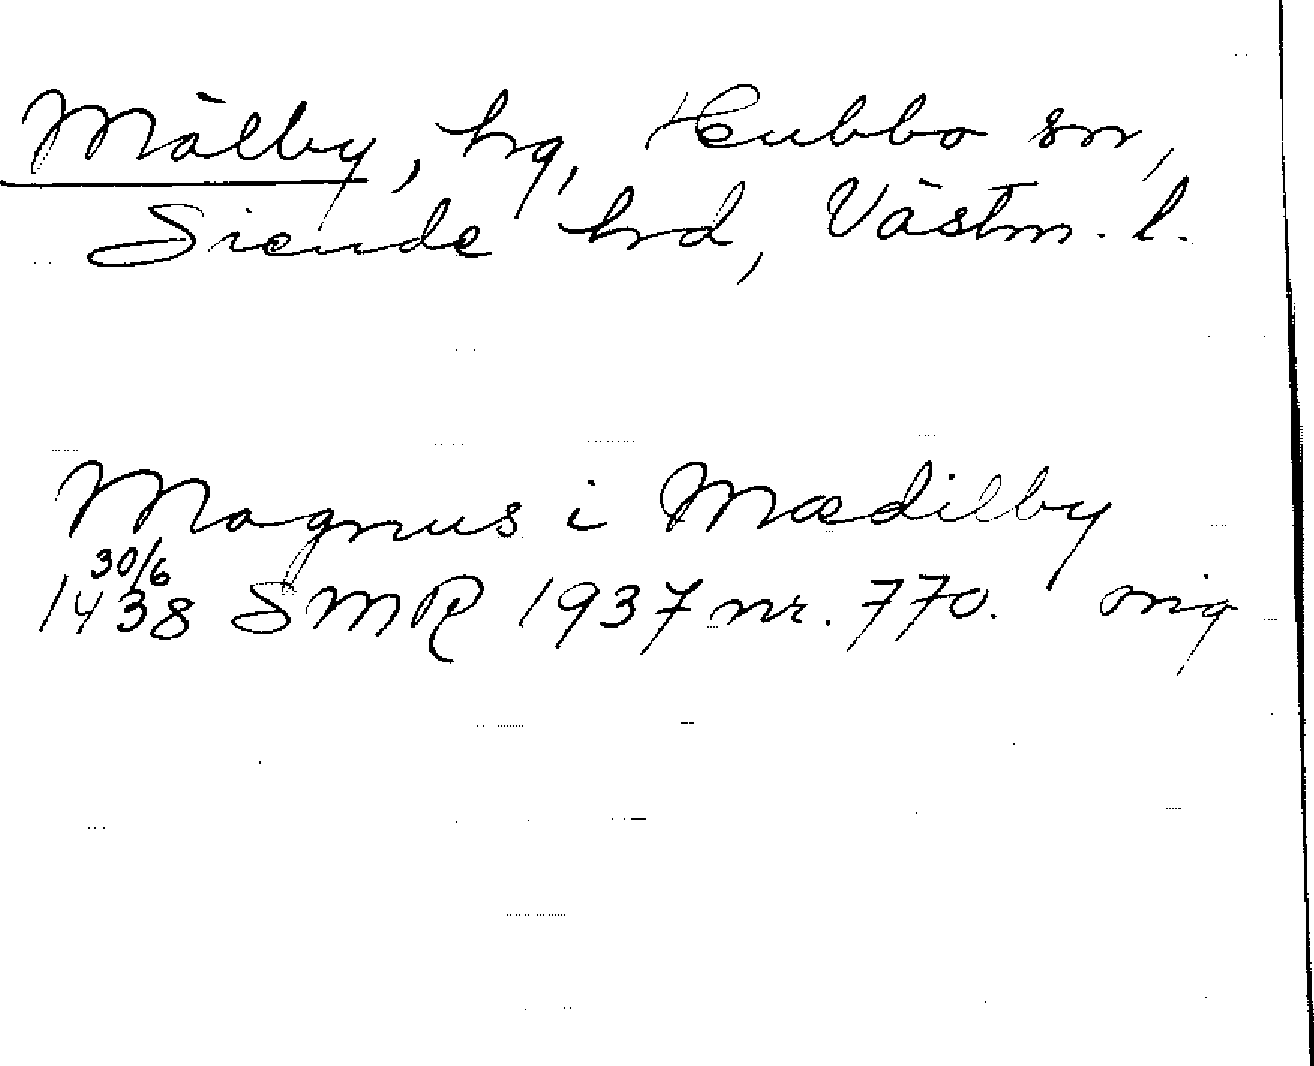 Mälby, hg, Hubbo sn,
Siende hrd, Västm. l.
Magnus i Mædilby
30/6
1438 SMR 1937 nr. 770. mig